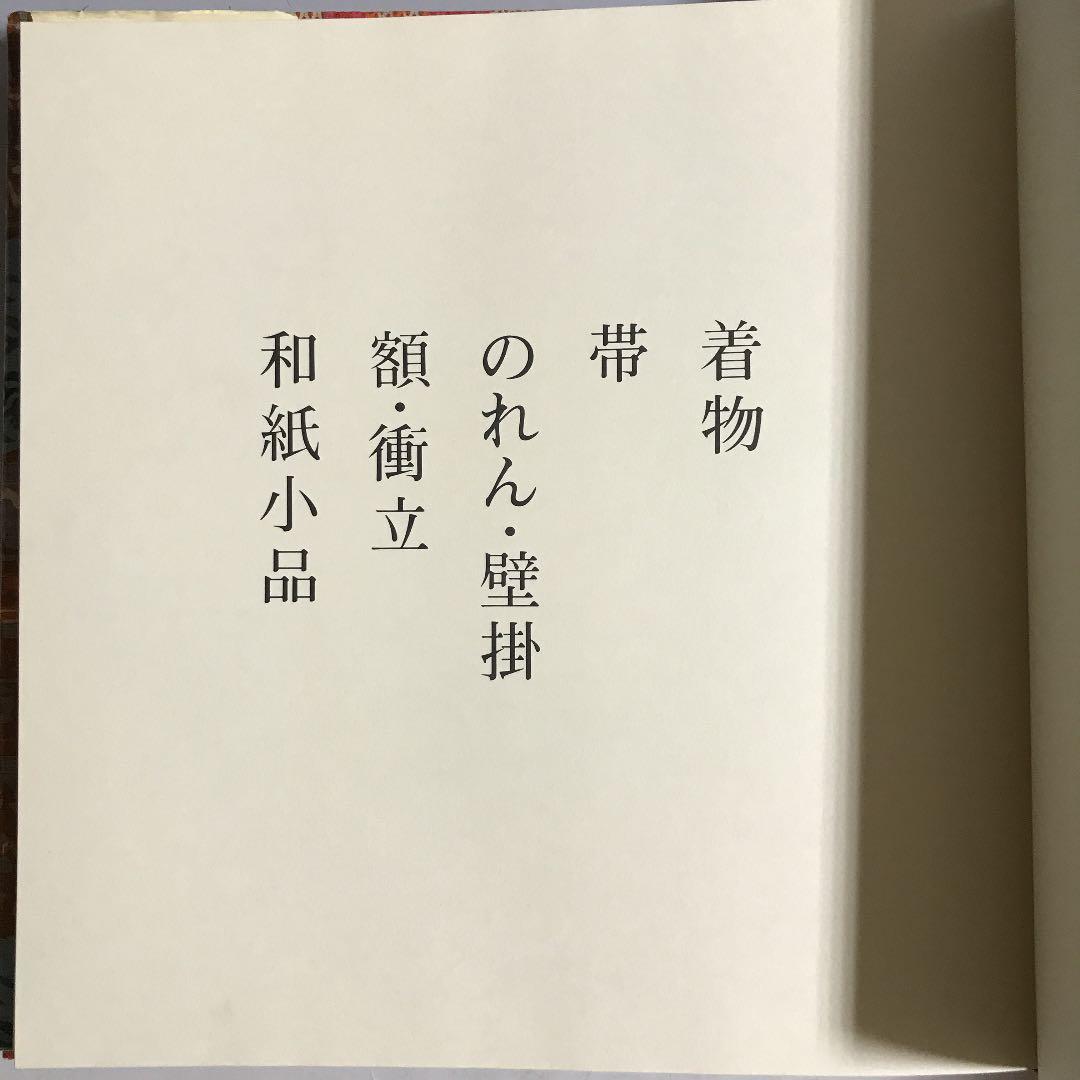 着物
帯
のれん・壁掛
額・衝立
和紙小品